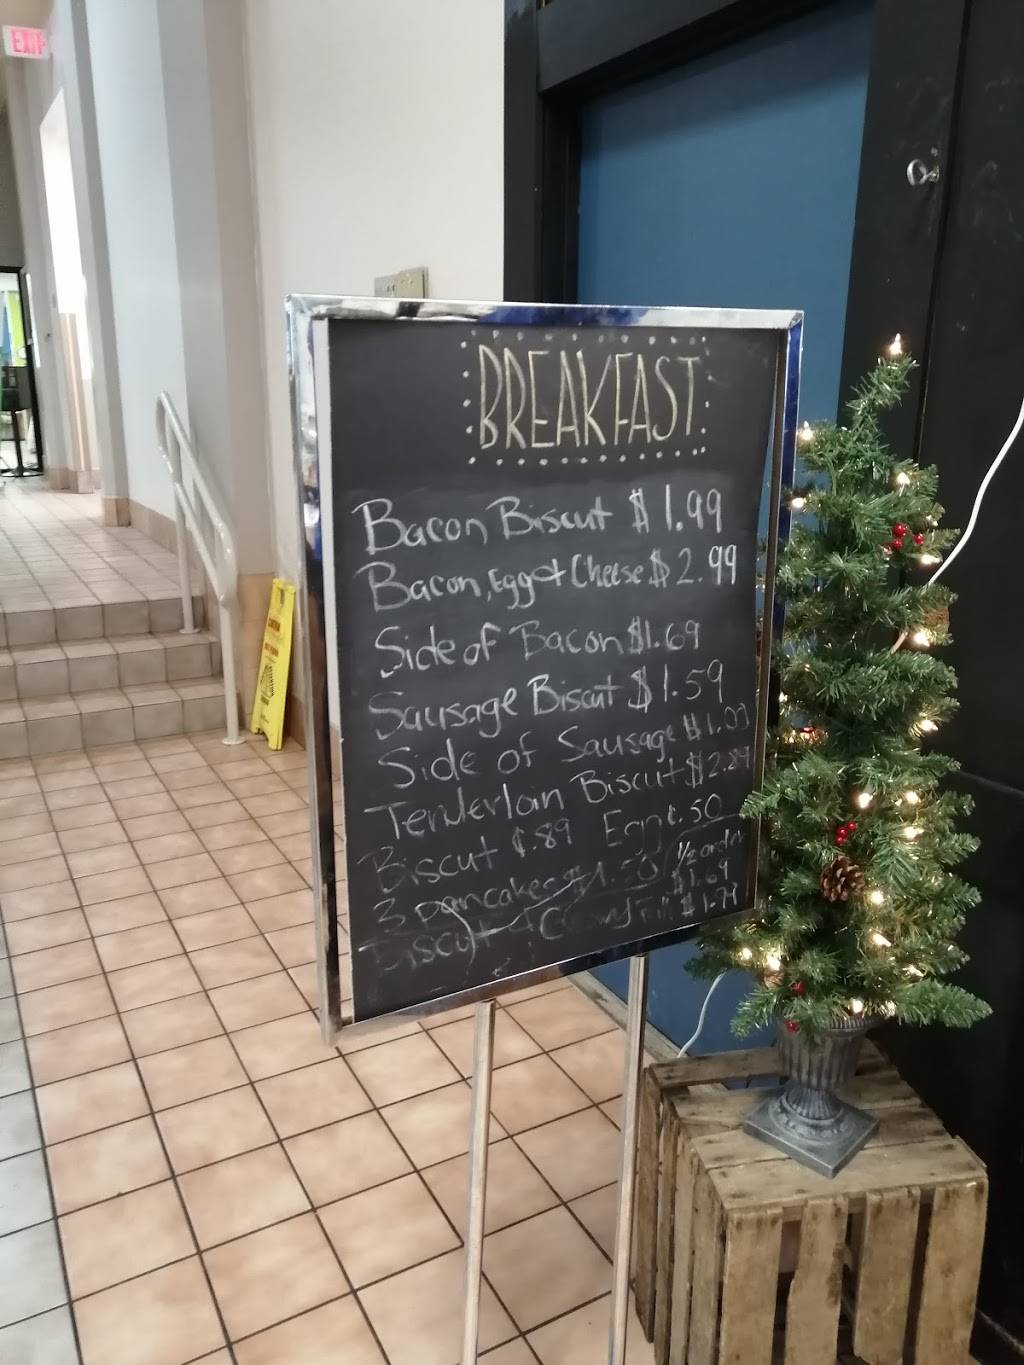 EXIT
BREAKFAST
Bacon Biscut $1.99
Bacon, Egg + Cheese $2.99
Side of Bacon $1.69
Sausage Biscut $1.59
Side of Sausage $1.09
Tenderloin Biscut $2.89
Biscut $.89 Egg $.50
3 pancakes $1.50 1/2 order
$1.69
Biscut + $1.79